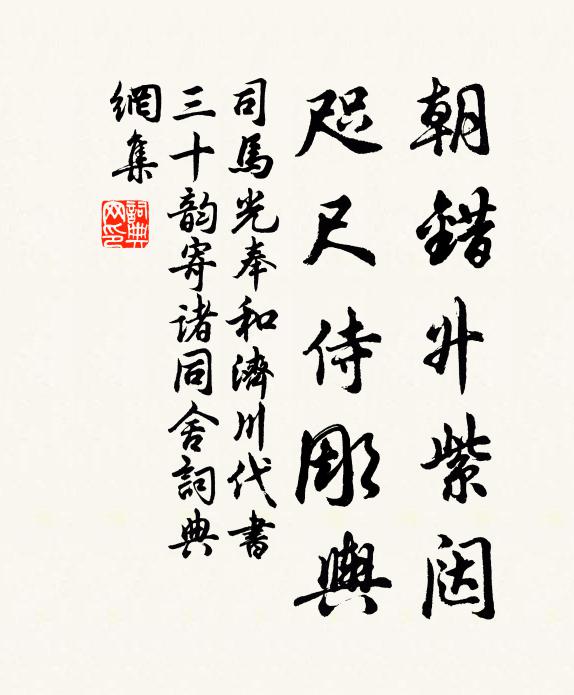 朝錯升紫闼
咫尺侍彫輿
司馬光奉和濟川代書
三十韵寄诸同舍詞典
網集
詞典
网印